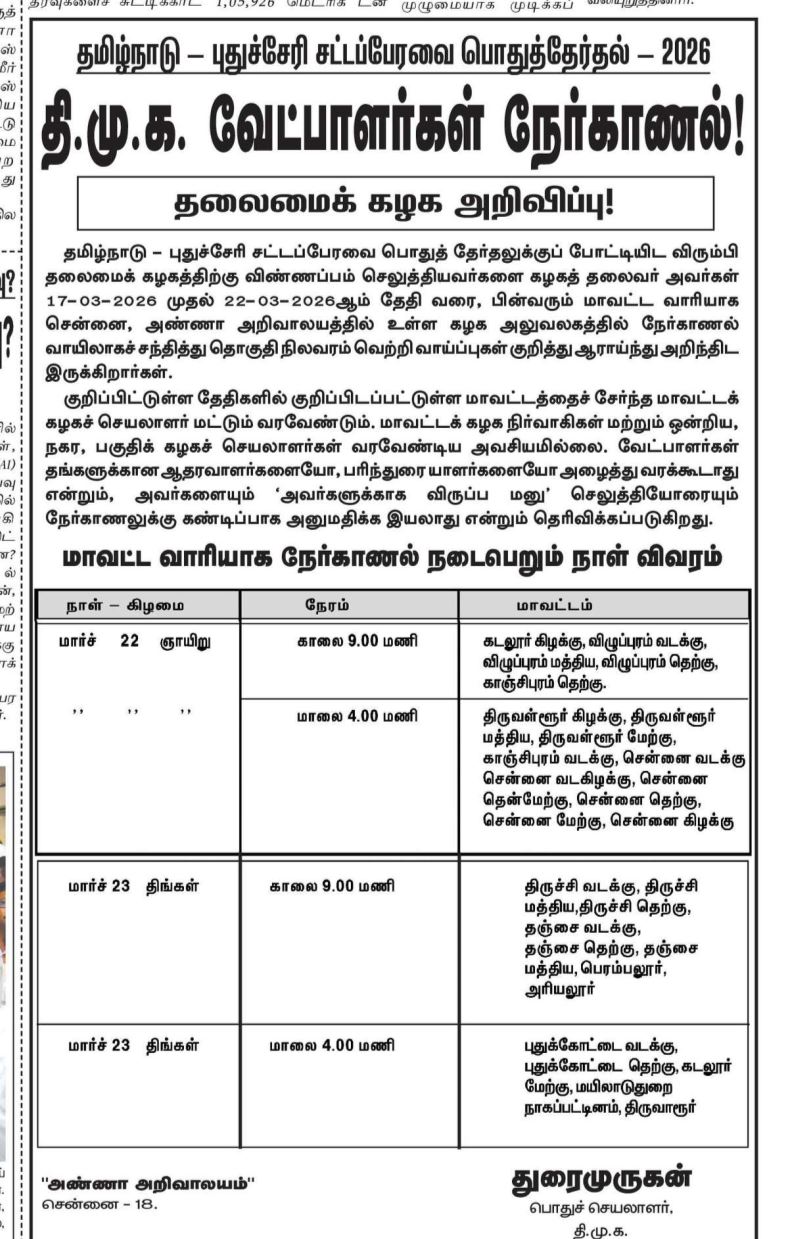 தரவுகளைச் சுட்டிக்காட்ட 1,05,926 மெட்ரிக் டன் முழுமையாக முடிக்கப் வலியுறுத்தினார்.
தமிழ்நாடு – புதுச்சேரி சட்டப்பேரவை பொதுத்தேர்தல் – 2026
தி.மு.க. வேட்பாளர்கள் நேர்காணல்!
தலைமைக் கழக அறிவிப்பு!
தமிழ்நாடு – புதுச்சேரி சட்டப்பேரவை பொதுத் தேர்தலுக்குப் போட்டியிட விரும்பி
தலைமைக் கழகத்திற்கு விண்ணப்பம் செலுத்தியவர்களை கழகத் தலைவர் அவர்கள்
17-03-2026 முதல் 22-03-2026ஆம் தேதி வரை, பின்வரும் மாவட்ட வாரியாக
சென்னை, அண்ணா அறிவாலயத்தில் உள்ள கழக அலுவலகத்தில் நேர்காணல்
வாயிலாகச் சந்தித்து தொகுதி நிலவரம் வெற்றி வாய்ப்புகள் குறித்து ஆராய்ந்து அறிந்திட
இருக்கிறார்கள்.
குறிப்பிட்டுள்ள தேதிகளில் குறிப்பிடப்பட்டுள்ள மாவட்டத்தைச் சேர்ந்த மாவட்டக்
கழகச் செயலாளர் மட்டும் வரவேண்டும். மாவட்டக் கழக நிர்வாகிகள் மற்றும் ஒன்றிய,
நகர, பகுதிக் கழகச் செயலாளர்கள் வரவேண்டிய அவசியமில்லை. வேட்பாளர்கள்
தங்களுக்கான ஆதரவாளர்களையோ, பரிந்துரையாளர்களையோ அழைத்து வரக்கூடாது
என்றும், அவர்களையும் ‘அவர்களுக்காக விருப்ப மனு’ செலுத்தியோரையும்
நேர்காணலுக்கு கண்டிப்பாக அனுமதிக்க இயலாது என்றும் தெரிவிக்கப்படுகிறது.
மாவட்ட வாரியாக நேர்காணல் நடைபெறும் நாள் விவரம்
நாள் – கிழமை நேரம் மாவட்டம்
மார்ச் 22 ஞாயிறு காலை 9.00 மணி கடலூர் கிழக்கு, விழுப்புரம் வடக்கு,
விழுப்புரம் மத்திய, விழுப்புரம் தெற்கு,
காஞ்சிபுரம் தெற்கு.
’’ ’’ ’’ மாலை 4.00 மணி திருவள்ளூர் கிழக்கு, திருவள்ளூர்
மத்திய, திருவள்ளூர் மேற்கு,
காஞ்சிபுரம் வடக்கு, சென்னை வடக்கு
சென்னை வடகிழக்கு, சென்னை
தென்மேற்கு, சென்னை தெற்கு,
சென்னை மேற்கு, சென்னை கிழக்கு
மார்ச் 23 திங்கள் காலை 9.00 மணி திருச்சி வடக்கு, திருச்சி
மத்திய,திருச்சி தெற்கு,
தஞ்சை வடக்கு,
தஞ்சை தெற்கு, தஞ்சை
மத்திய, பெரம்பலூர்,
அரியலூர்
மார்ச் 23 திங்கள் மாலை 4.00 மணி புதுக்கோட்டை வடக்கு,
புதுக்கோட்டை தெற்கு, கடலூர்
மேற்கு, மயிலாடுதுறை
நாகப்பட்டினம், திருவாரூர்
"அண்ணா அறிவாலயம்"
சென்னை - 18.
துரைமுருகன்
பொதுச் செயலாளர்,
தி.மு.க.